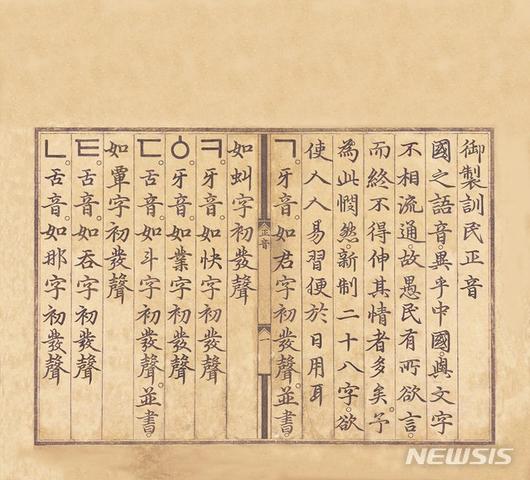 御製訓民正音
國之語音。異乎中國。與文字
不相流通。故愚民有所欲言。
而終不得伸其情者多矣。予
為此憫然。新制二十八字。欲
使人人易習便於日用耳
ㄱ。牙音。如君字初發聲。並書。
如虯字初發聲
ㅋ。牙音。如快字初發聲
ㆁ。牙音。如業字初發聲
ㄷ。舌音。如斗字初發聲。並書。
如覃字初發聲
ㅌ。舌音。如呑字初發聲
ㄴ。舌音。如那字初發聲
正音
一
NEWSIS